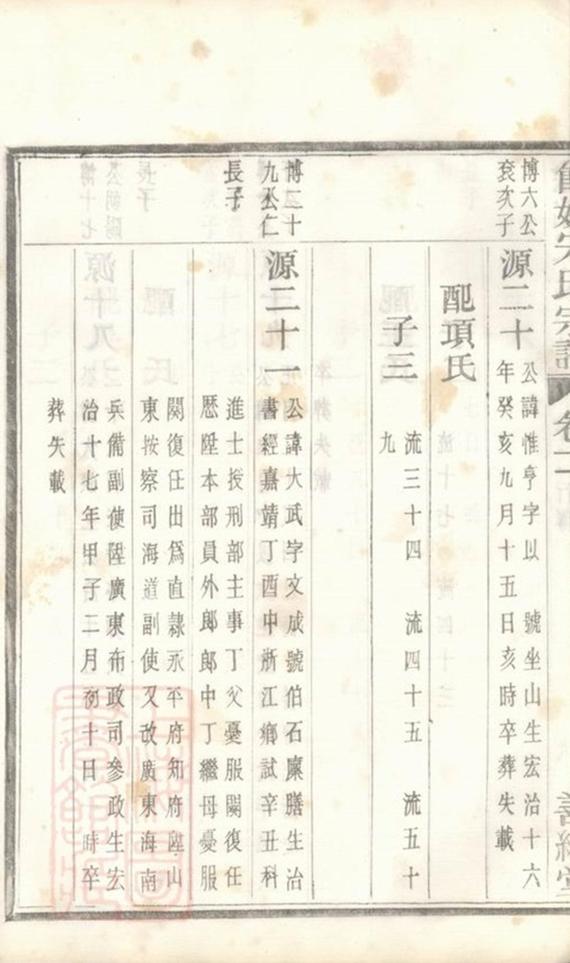 宋氏宗譜
卷二
善繼堂
博六公
袞次子
源二十
公諱惟亨字以　號坐山生宏治十六
年癸亥九月十五日亥時卒葬失載
配項氏
子三
流三十四　流四十五　流五十
九
博二十
九公仁
長子
源二十一
公諱大武字文成號伯石廩膳生治
書經嘉靖丁酉中浙江鄉試辛丑科
進士授刑部主事丁父憂服闋復任
歷陞本部員外郎郎中丁繼母憂服
闋復任出為直隸永平府知府陞山
東按察司海道副使又改廣東海南
兵備副使陞廣東布政司參政生宏
治十七年甲子三月初十日　時卒
葬失載